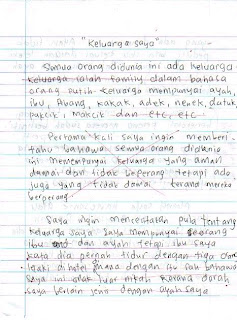 "Keluarga saya"
Semua orang didunia ini ada keluarga
Keluarga ialah family dalam bahasa
orang putih. Keluarga mempunyai ayah,
ibu, Abang, kakak, adek, nenek, datuk,
pakcik, makcik dan etc, etc
Pertama kali saya ingin memberi
tahu bahawa semua orang didunia
ini mempunyai keluarga yang aman
damai dan tidak beperang tetapi ada
juga yang tidak damai mereka
berperang.
Saya ingin menceritakan pula tentang
keluarga saya saya mempunyai seorang
ibu dan ayah tetapi ibu saya
kata dia pernah tidur dengan tiga orang
lelaki dihotel mana dengan itu sah bahawa
saya ini anak luar nikah kerana darah
saya berlain jenis dengan ayah saya